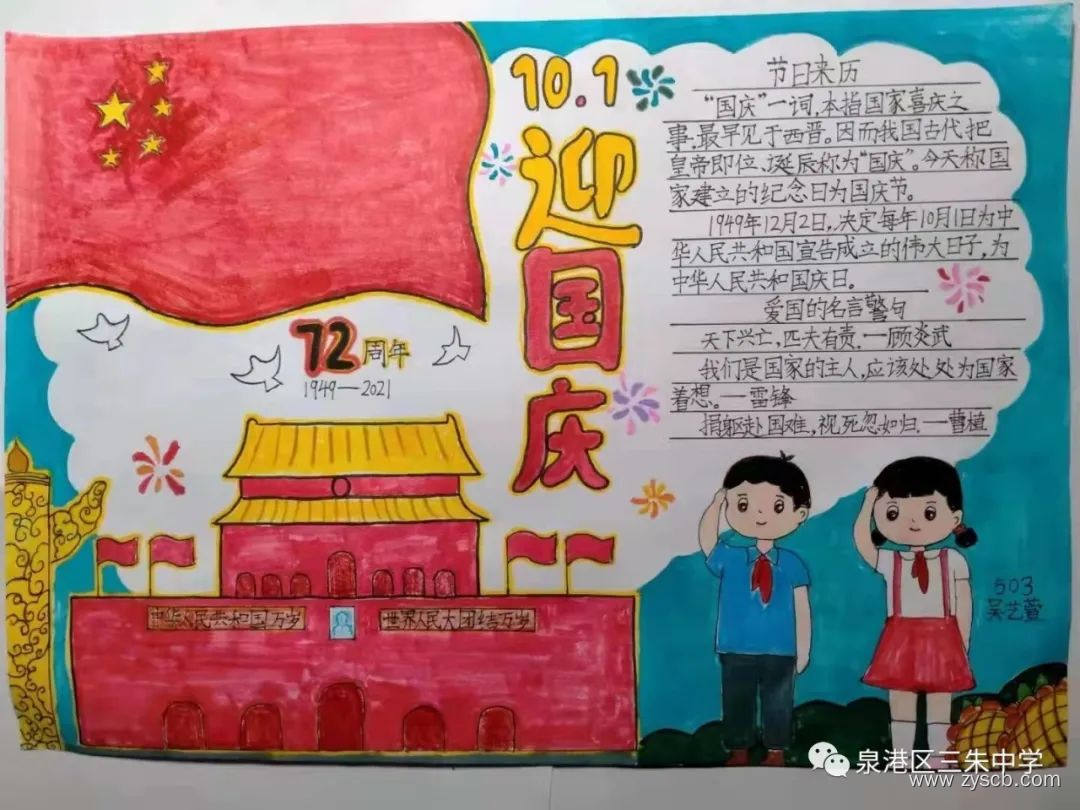 10.1
迎
国
庆
72周年
1949—2021
中华人民共和国万岁
世界人民大团结万岁
节日来历
“国庆”一词,本指国家喜庆之
事,最早见于西晋。因而我国古代把
皇帝即位、诞辰称为“国庆”。今天称国
家建立的纪念日为国庆节。
1949年12月2日,决定每年10月1日为中
华人民共和国宣告成立的伟大日子,为
中华人民共和国庆日。
爱国的名言警句
天下兴亡,匹夫有责.—顾炎武
我们是国家的主人,应该处处为国家
着想。—雷锋
捐躯赴国难,视死忽如归.—曹植
503
吴艺萱
泉港区三朱中学
www.zyscb.com